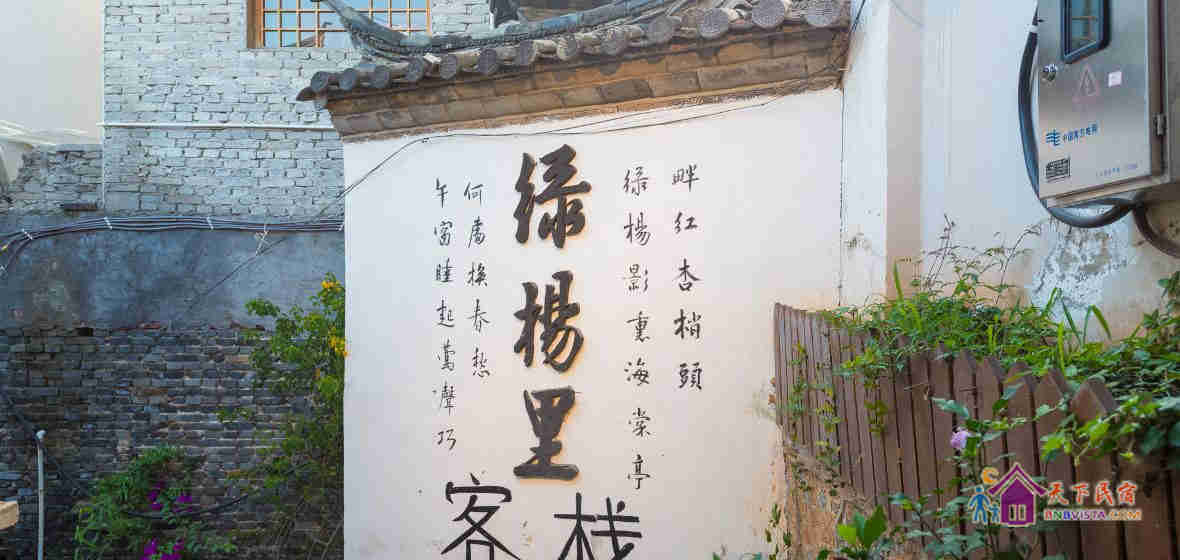 午窗睡起鶯聲巧
何處換春愁
绿楊里
客栈
绿楊影裏海棠亭
畔红杏梢頭
中国南方电网
天下民宿
BNBVISTA.COM